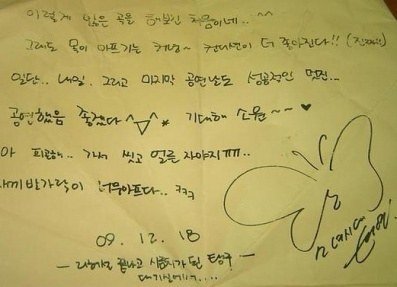 이렇게 많은 곡을 해보긴 처음이네.. ^^
그래도 몸이 아프기는 커녕~ 컨디션이 더 좋아진다!! (진짜!!)
일단.. 내일. 그리고 마지막 공연날도 성공적인 멋진...
공연했음 좋겠다 ^▽^* 기대해 소원~~ ♥
아 피곤해.. 가서 씻고 얼른 자야지ㅠㅠ..
새끼발가락이 너무아프다.. ㅋㅋ
소녀시대
09. 12. 18
끝나고 된 탱구 -
대기실에서....